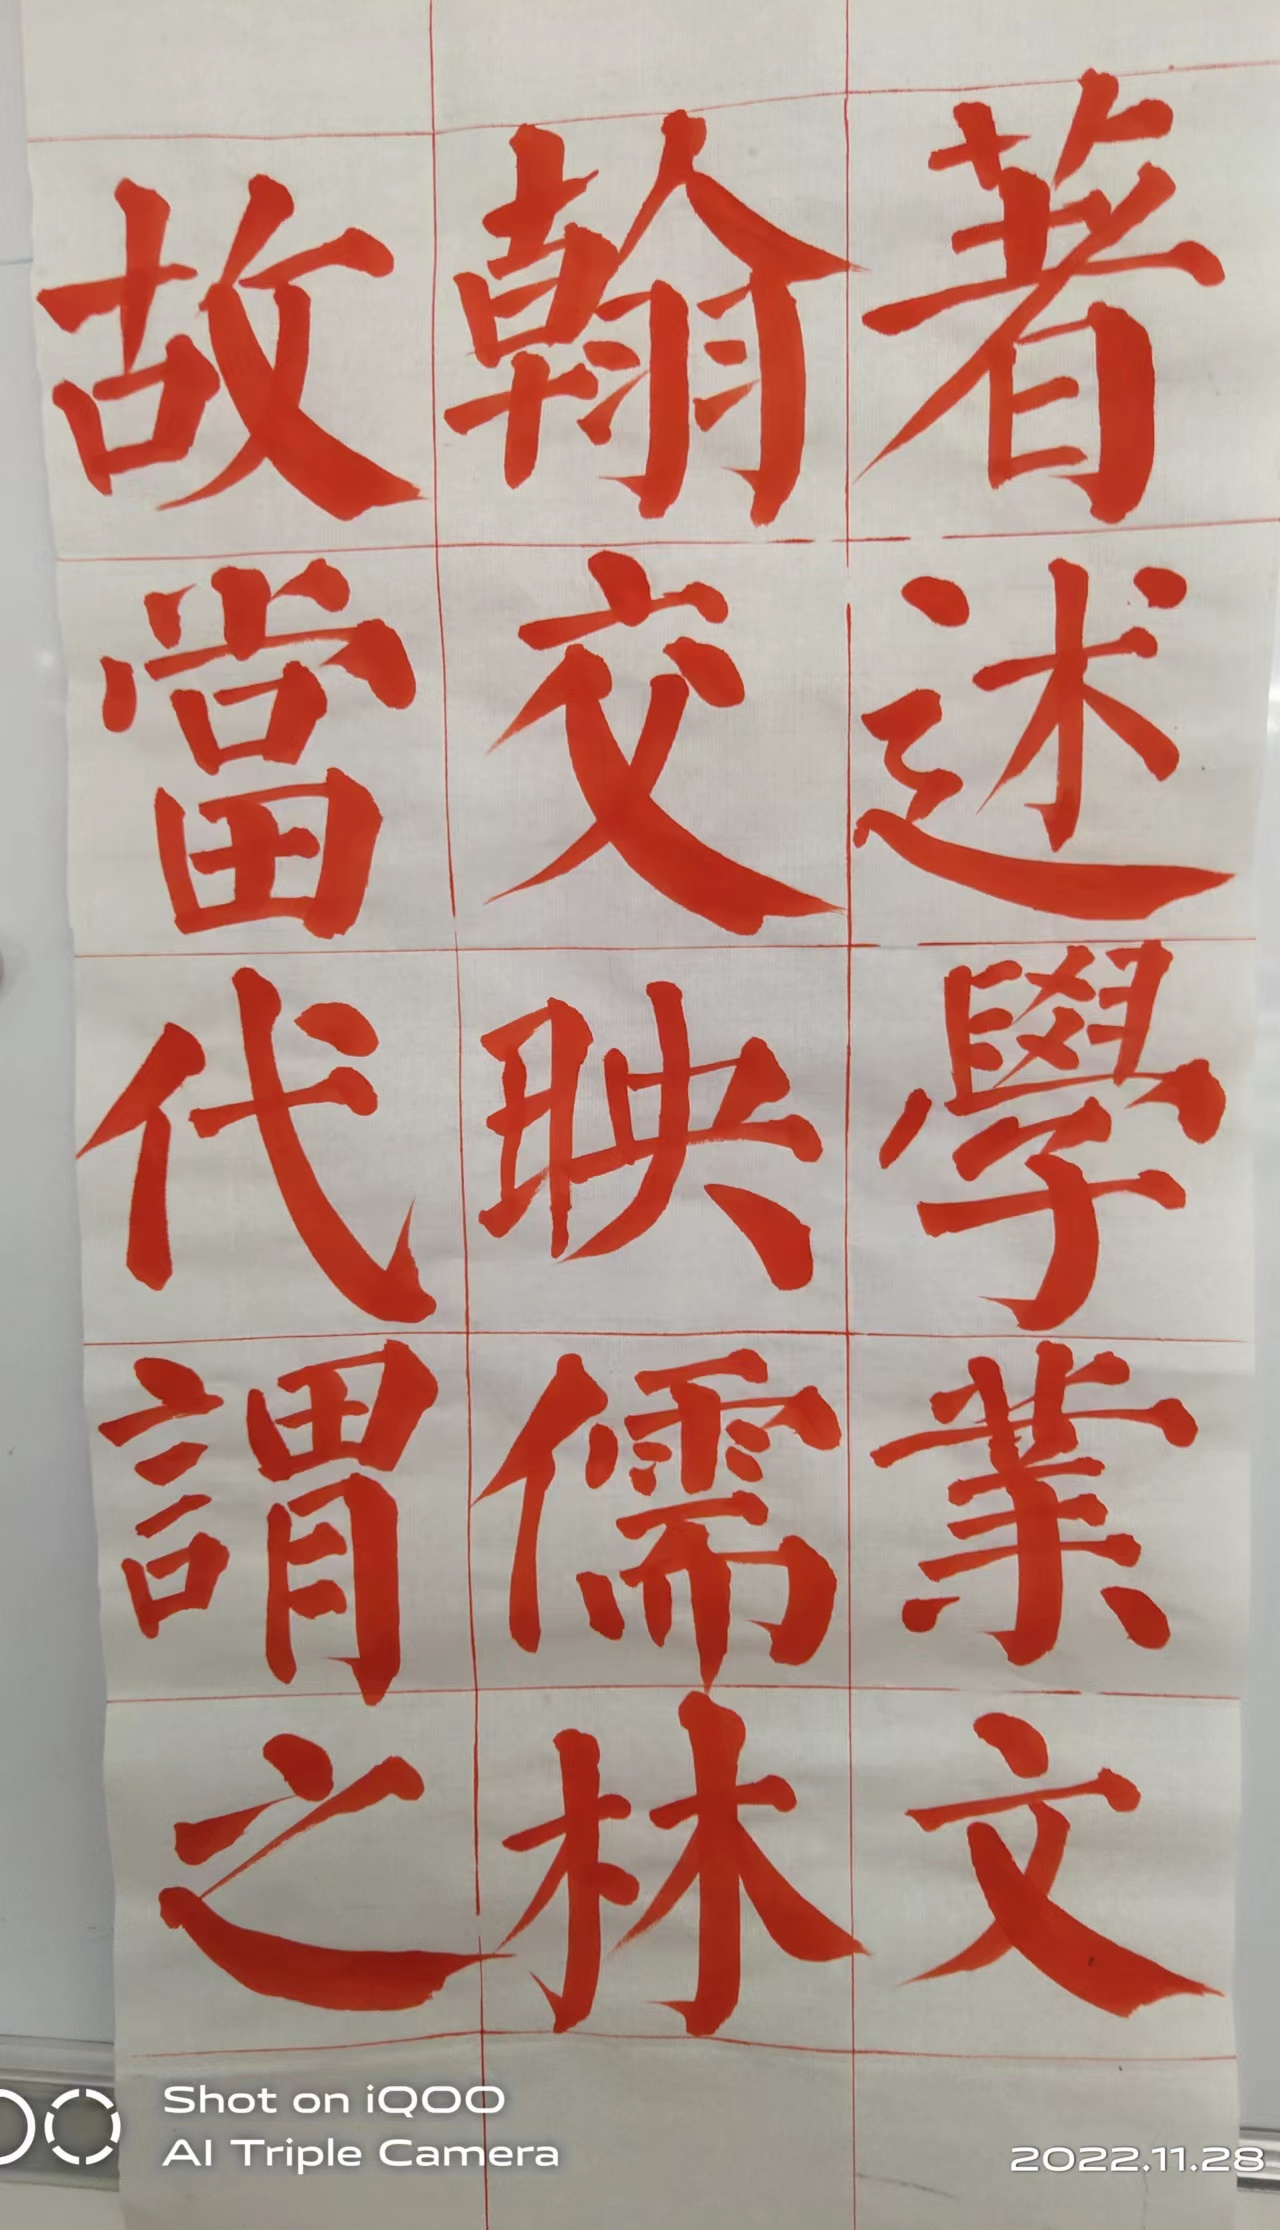 著述學業文
翰交映儒林
故當代謂之
Shot on iQOO
AI Triple Camera
2022.11.28